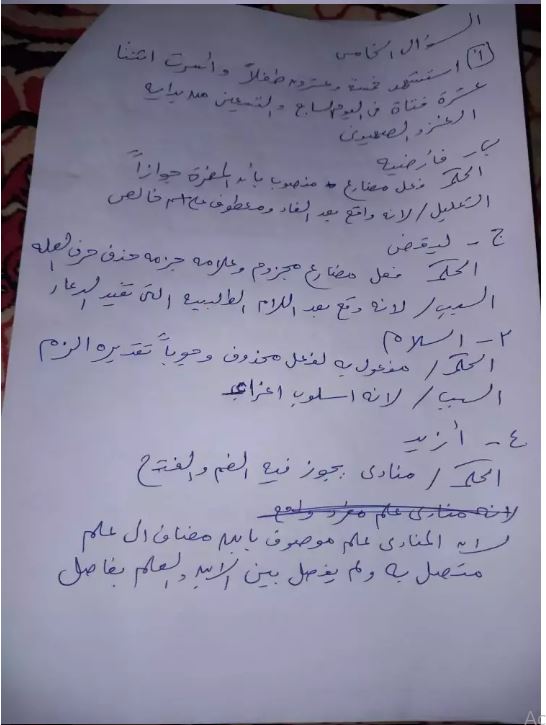 السؤال الخامس
(أ) استشهد خمسة وعشرون طفلاً وأسرت اثنتا
عشرة فتاة في اليوم السابع والتسعين من بداية
الغزو الصهيوني
ب- فأرضيه
الحكم فعل مضارع منصوب بأن المضمرة جوازاً
التعليل/ لانه واقع بعد الفاء ومعطوف على اسم خالص
ج - ليقض
الحكم فعل مضارع مجزوم وعلامه جزمه حذف حرف العله
السبب/ لانه وقع بعد اللام الطلبيه التي تفيد الدعاء
٢- السلام
الحكم/ مفعول به لفعل محذوف وجوباً تقديره الزم
السبب/ لانه اسلوب اغراء
٤- أزيد
الحكم/ منادى يجوز فيه الضم والفتح
لانه منادى علم مفرد
لان المنادى علم موصوف بابن مضاف ال علم
متصل به ولم يفصل بين الابن والعلم بفاصل